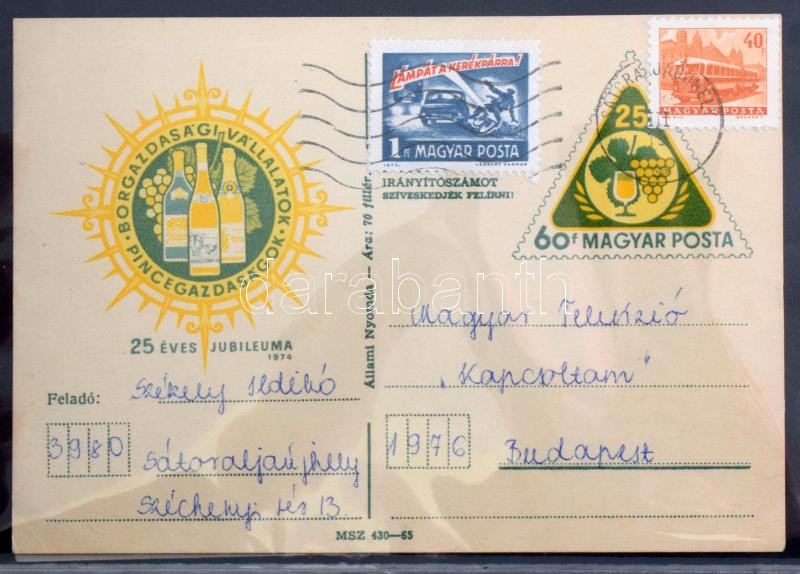 BORGAZDASÁGI VÁLLALATOK • PINCEGAZDASÁGOK •
25 ÉVES JUBILEUMA
1974
LÁMPÁT A KERÉKPÁRRA!
1 Ft MAGYAR POSTA
1973.
LÉGRÁDY SÁNDOR
40 f
MAGYAR POSTA
25
60f MAGYAR POSTA
IRÁNYÍTÓSZÁMOT
SZÍVESKEDJÉK FELÍRNI!
Állami Nyomda — Ára: 70 fillér.
darabanth
Magyar Televízió
„Kapcsoltam"
1976 Budapest
Feladó: Székely Ildikó
3980 Sátoraljaújhely
Széchenyi tér 13
MSZ 430—65